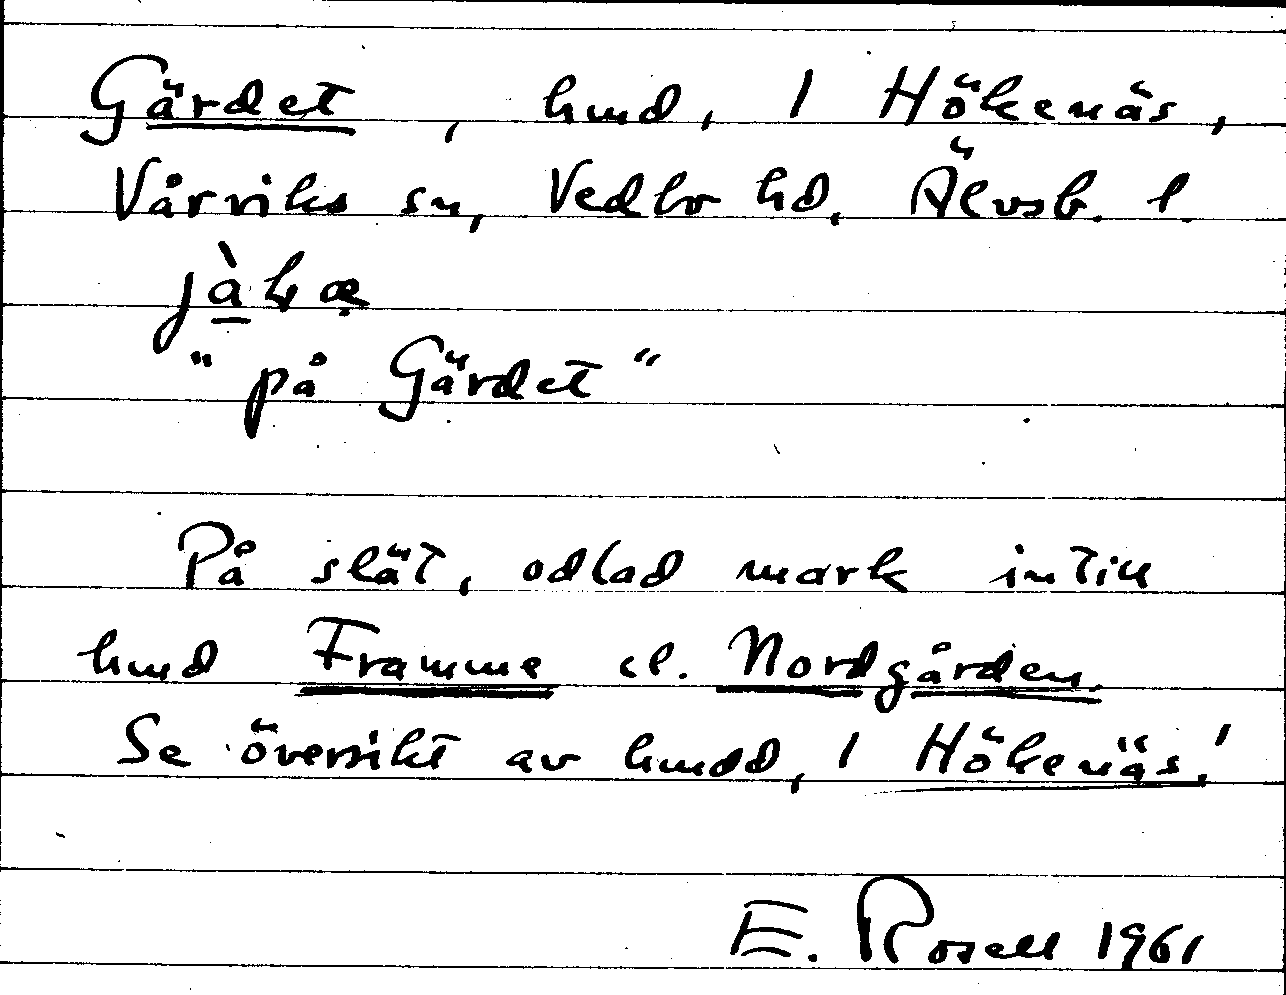 Gärdet, hmd, 1 Hökenäs,
Vårviks sn, Vedbo hd, Älvsb. l.
"på Gärdet"
På slät, odlad mark intill
hmd Framme el. Nordgården.
Se översikt av hmdd, 1 Hökenäs!
E. Rosell 1961